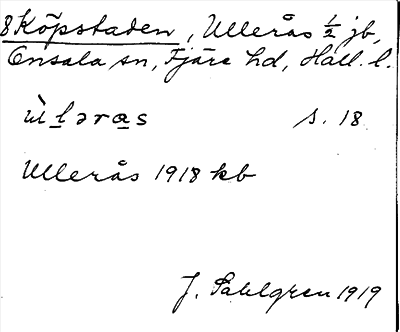 8 Köpstaden, Ullerås ½ jb,
Onsala sn, Fjäre hd, Hall. l.
ùləras s. 18
Ullerås 1918 kb
J. Sahlgren 1919